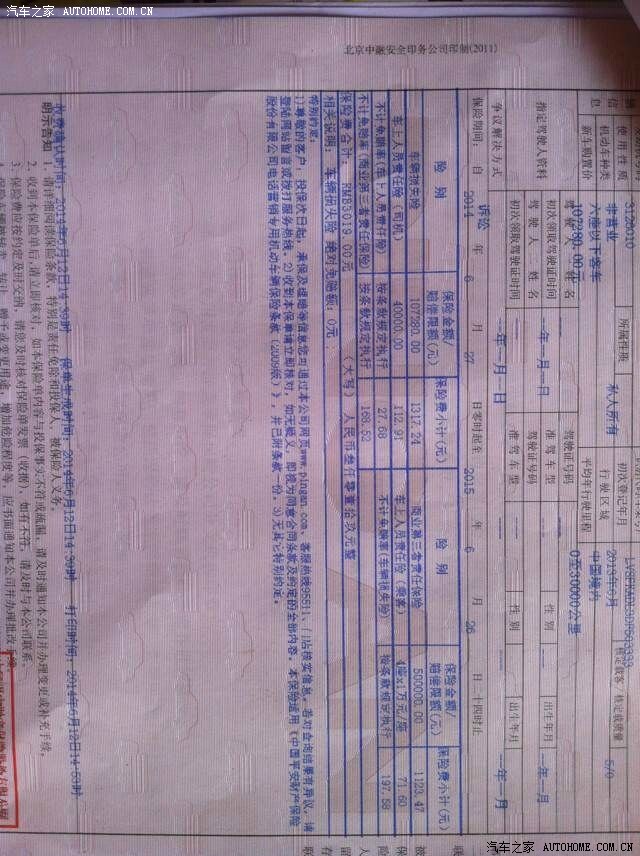 汽车之家 AUTOHOME.COM.CN
北京中融安全印务公司印制(2011)
使用性质 非营业 所属性质 私人所有 初次登记年月 2013年6月 核定载客/核定载质量 5/0
机动车种类 六座以下客车 行驶区域 中国境内
新车购置价 107280.00元 平均年行驶里程 0至30000公里
指定驾驶人资料 驾驶人姓名 驾驶证号码 性别 出生年月
初次领取驾驶证时间 —年—月—日 准驾车型 —年—月
驾驶人姓名 驾驶证号码 性别 出生年月
初次领取驾驶证时间 —年—月—日 准驾车型 —年—月
争议解决方式 诉讼
保险期间: 自 2014 年 6 月 27 日零时起至 2015 年 6 月 26 日二十四时止
险别 保险金额/赔偿限额(元) 保险费小计(元) 险别 保险金额/赔偿限额(元) 保险费小计(元)
车辆损失险 107280.00 1317.24 商业第三者责任保险 500000.00 1123.47
车上人员责任险(司机) 40000.00 112.91 车上人员责任险(乘客) 4座×1万元/座 71.60
不计免赔率(车上人员责任险) 按条款规定执行 27.68 不计免赔率(车辆损失险) 按条款规定执行 197.58
不计免赔率(商业第三者责任保险) 按条款规定执行 168.52
保险费合计: RMB3019.00元 (大写) 人民币叁仟零壹拾玖元整
相关说明: 车辆损失险 绝对免赔额:0元;
特别约定:
1)尊敬的客户,投保次日起,承保及理赔等信息您可通过本公司网页www.pingan.com、客服热线95511、门店核实信息。若对查询结果有异议,请
登陆网站留言或拨打服务热线。2)收到本保单请立即核对,如无疑义,即视为同意合同条款及约定的全部内容。本保险适用《中国平安财产保险
股份有限公司电话营销专用机动车辆保险条款(2009版)》,并已附条款一份。3)无其它特别约定。
收费确认时间:2014年6月12日14:39时 保单生成时间:2014年6月12日14:39时 打印时间:2014年6月12日14:53时
明示告知 1. 请详细阅读保险条款,特别是责任免除和投保人、被保险人义务。
2. 收到本保险单后,请立即核对,如本保险单内容与投保事实不符或疏漏,请及时通知本公司并办理变更或补充手续。
3. 保险费应按约定及时交清,请您及时核对保险单发票(收据),如有不符,请及时与本公司联系。
汽车之家 AUTOHOME.COM.CN